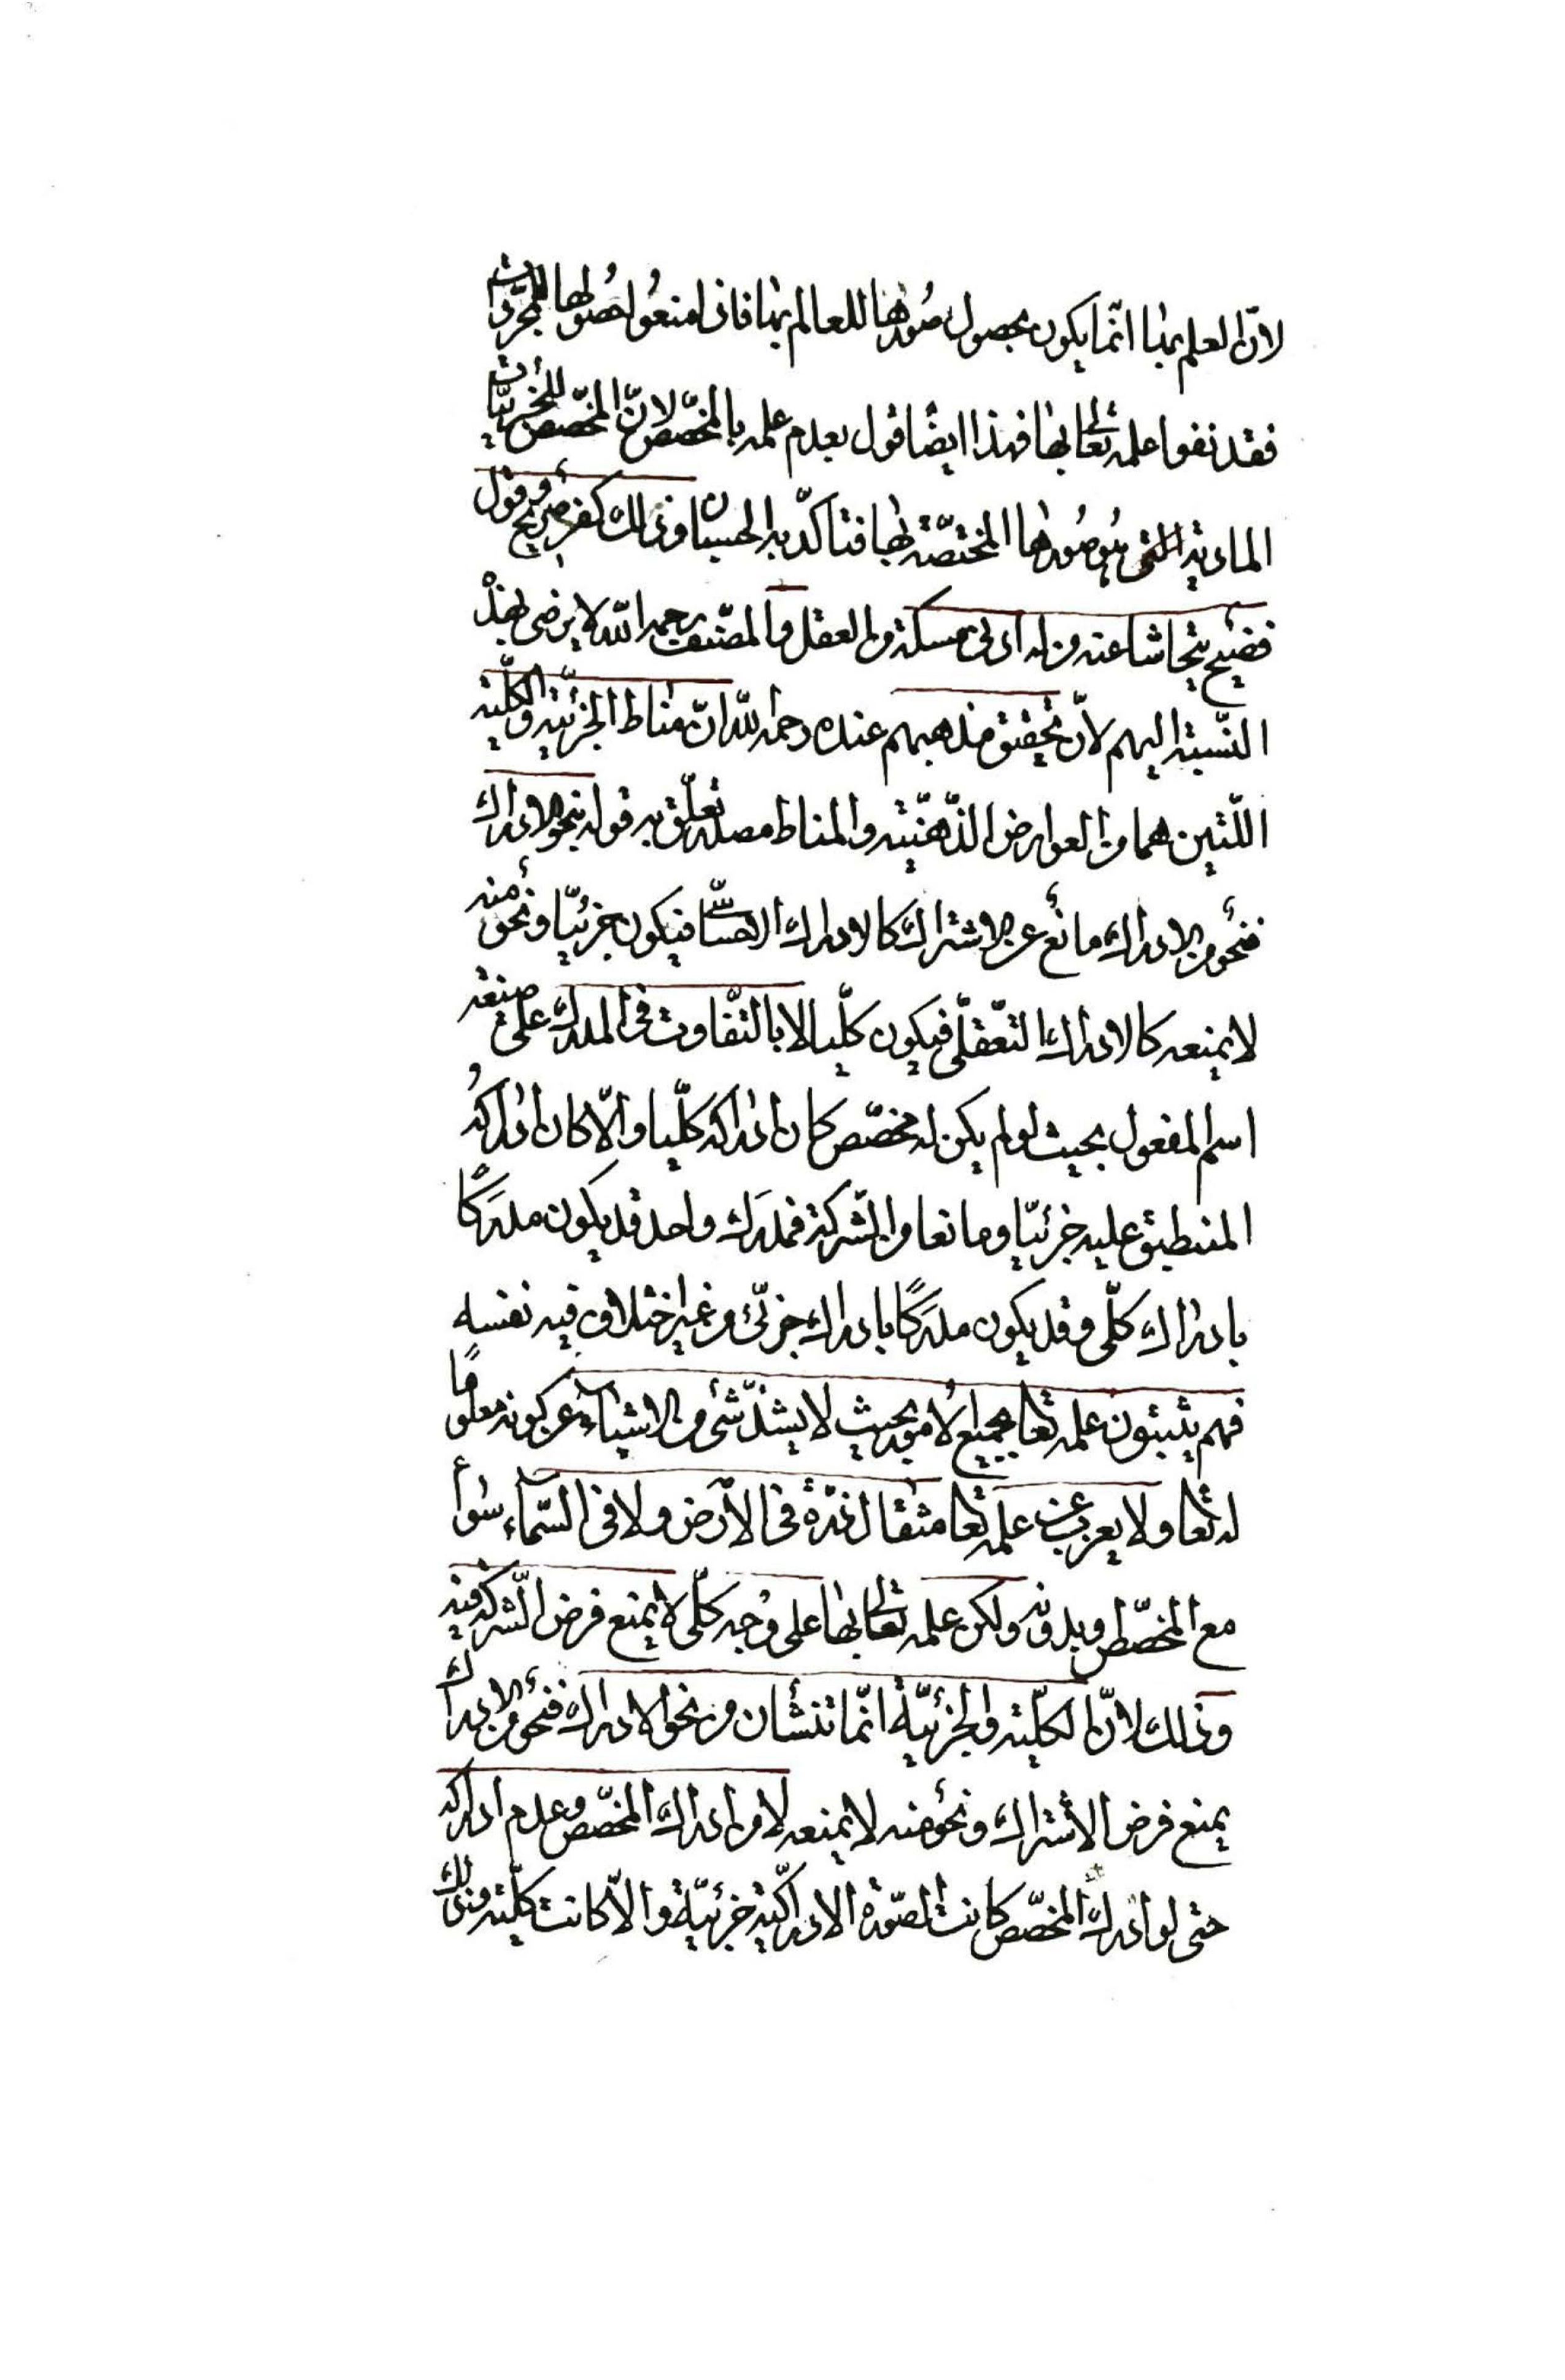 لانّ العلم بها انّما يكون بحصول صُورها للعالم بها فاذا منعُوا حصُولها للمجرّدات
فقد نفوا علمه تعالى بها فهذا ايضًا قول بعدم علمه بالمخصّص لانّ المخصّص للجزئيّات
الماديّة التى هو صُورها المختصّة بها وذلك كفر صريح وقول
فضيح يتحاشا عنه من له ادنى مسكة من العقل والمصنّف رحمه الله لا يرضى بهذه
النّسبة اليهم لانّ تحقيق مذهبهم عنده رحمه الله انّ مناط الجزئيّة والكلّيّة
اللّتين هما من العوارض الذّهنيّة والمناط مصدر تعلّق به قوله نحو الادراك
فنحو من الادراك مانع عن الاشتراك كالادراك الاحساسىّ فيكون جزئيّا ونحو منه
لا يمنعه كالادراك التّعقّلى فيكون كلّيا لا بالتّفاوت فى المدرك على صيغة
اسم المفعول بحيث لو لم يكن له مخصّص كان ادراكه كلّيا والّا كان ادراكهُ
المنطبق عليه جزئيّا ومانعا من الشّركة فمدرَك واحد قد يكون مدرَكًا
بادراك كلّى وقد يكون مدرَكًا بادراك جزئى من غير اختلاف فيه نفسه
فهم يثبتون علمه تعا بجميع الامور بحيث لا يشذّ شئ من الاشياء عن كونه معلومًا
له تعا ولا يعزب عن علمه تعا مثقال ذرّة فى الارض ولا فى السّماء سوآء
مع المخصّص وبدونه ولكن علمه تعالى بها على وجه كلّى لا يمنع فرض الشّركة فيه
وذلك لانّ الكلّية والجزئيّة انّما تنشأن من نحو الادراك فنحو من الادراك
يمنع فرض الاشتراك ونحو منه لا يمنعه لا من ادراك المخصّص وعدم ادراكه
حتى لو ادرك المخصّص كانت الصّورة الادراكية جزئيّة والّا كانت كلّية وذلك